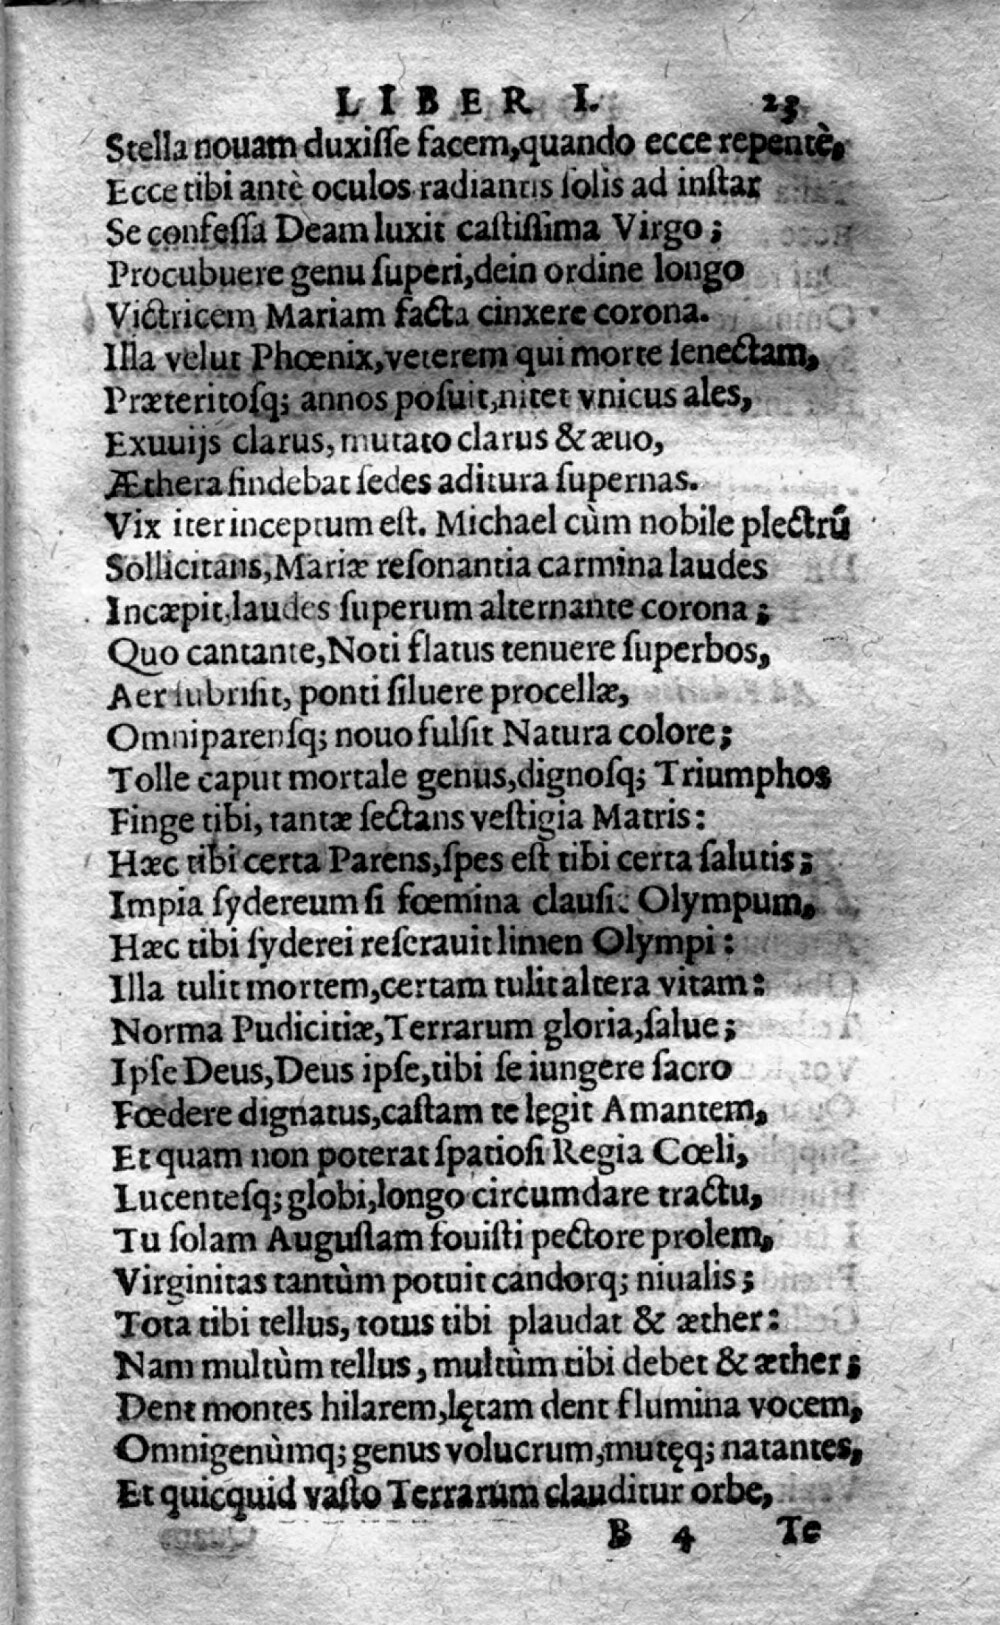 LIBER I. 23
Stella nouam duxiſſe facem,quando ecce repentè,
Ecce tibi antè oculos radiantis ſolis ad inſtar
Se confeſſa Deam luxit caſtiſſima Virgo;
Procubuere genu ſuperi,dein ordine longo
Victricem Mariam facta cinxere corona.
Illa velut Phœnix,veterem qui morte ſenectam,
Præteritoſq; annos poſuit,nitet vnicus ales,
Exuuijs clarus, mutato clarus & æuo,
Æthera findebat ſedes aditura ſupernas.
Vix iter inceptum eſt. Michael cùm nobile plectrũ
Sollicitans,Mariæ reſonantia carmina laudes
Incæpit,laudes ſuperum alternante corona;
Quo cantante,Noti flatus tenuere ſuperbos,
Aer ſubriſit, ponti ſiluere procellæ,
Omniparenſq; nouo fulſit Natura colore;
Tolle caput mortale genus,dignoſq; Triumphos
Finge tibi, tantæ ſectans veſtigia Matris:
Hæc tibi certa Parens,ſpes eſt tibi certa ſalutis;
Impia ſydereum ſi fœmina clauſit Olympum,
Hæc tibi ſyderei reſerauit limen Olympi:
Illa tulit mortem,certam tulit altera vitam:
Norma Pudicitiæ,Terrarum gloria,ſalue;
Ipſe Deus,Deus ipſe,tibi ſe iungere ſacro
Fœdere dignatus,caſtam te legit Amantem,
Et quam non poterat ſpatioſi Regia Cœli,
Lucenteſq; globi,longo circumdare tractu,
Tu ſolam Auguſtam fouiſti pectore prolem,
Virginitas tantùm potuit candorq; niualis;
Tota tibi tellus, totus tibi plaudat & æther:
Nam multùm tellus, multùm tibi debet & æther;
Dent montes hilarem,lętam dent flumina vocem,
Omnigenùmq; genus volucrum,mutęq; natantes,
Et quicquid vaſto Terrarum clauditur orbe,
B 4 Te